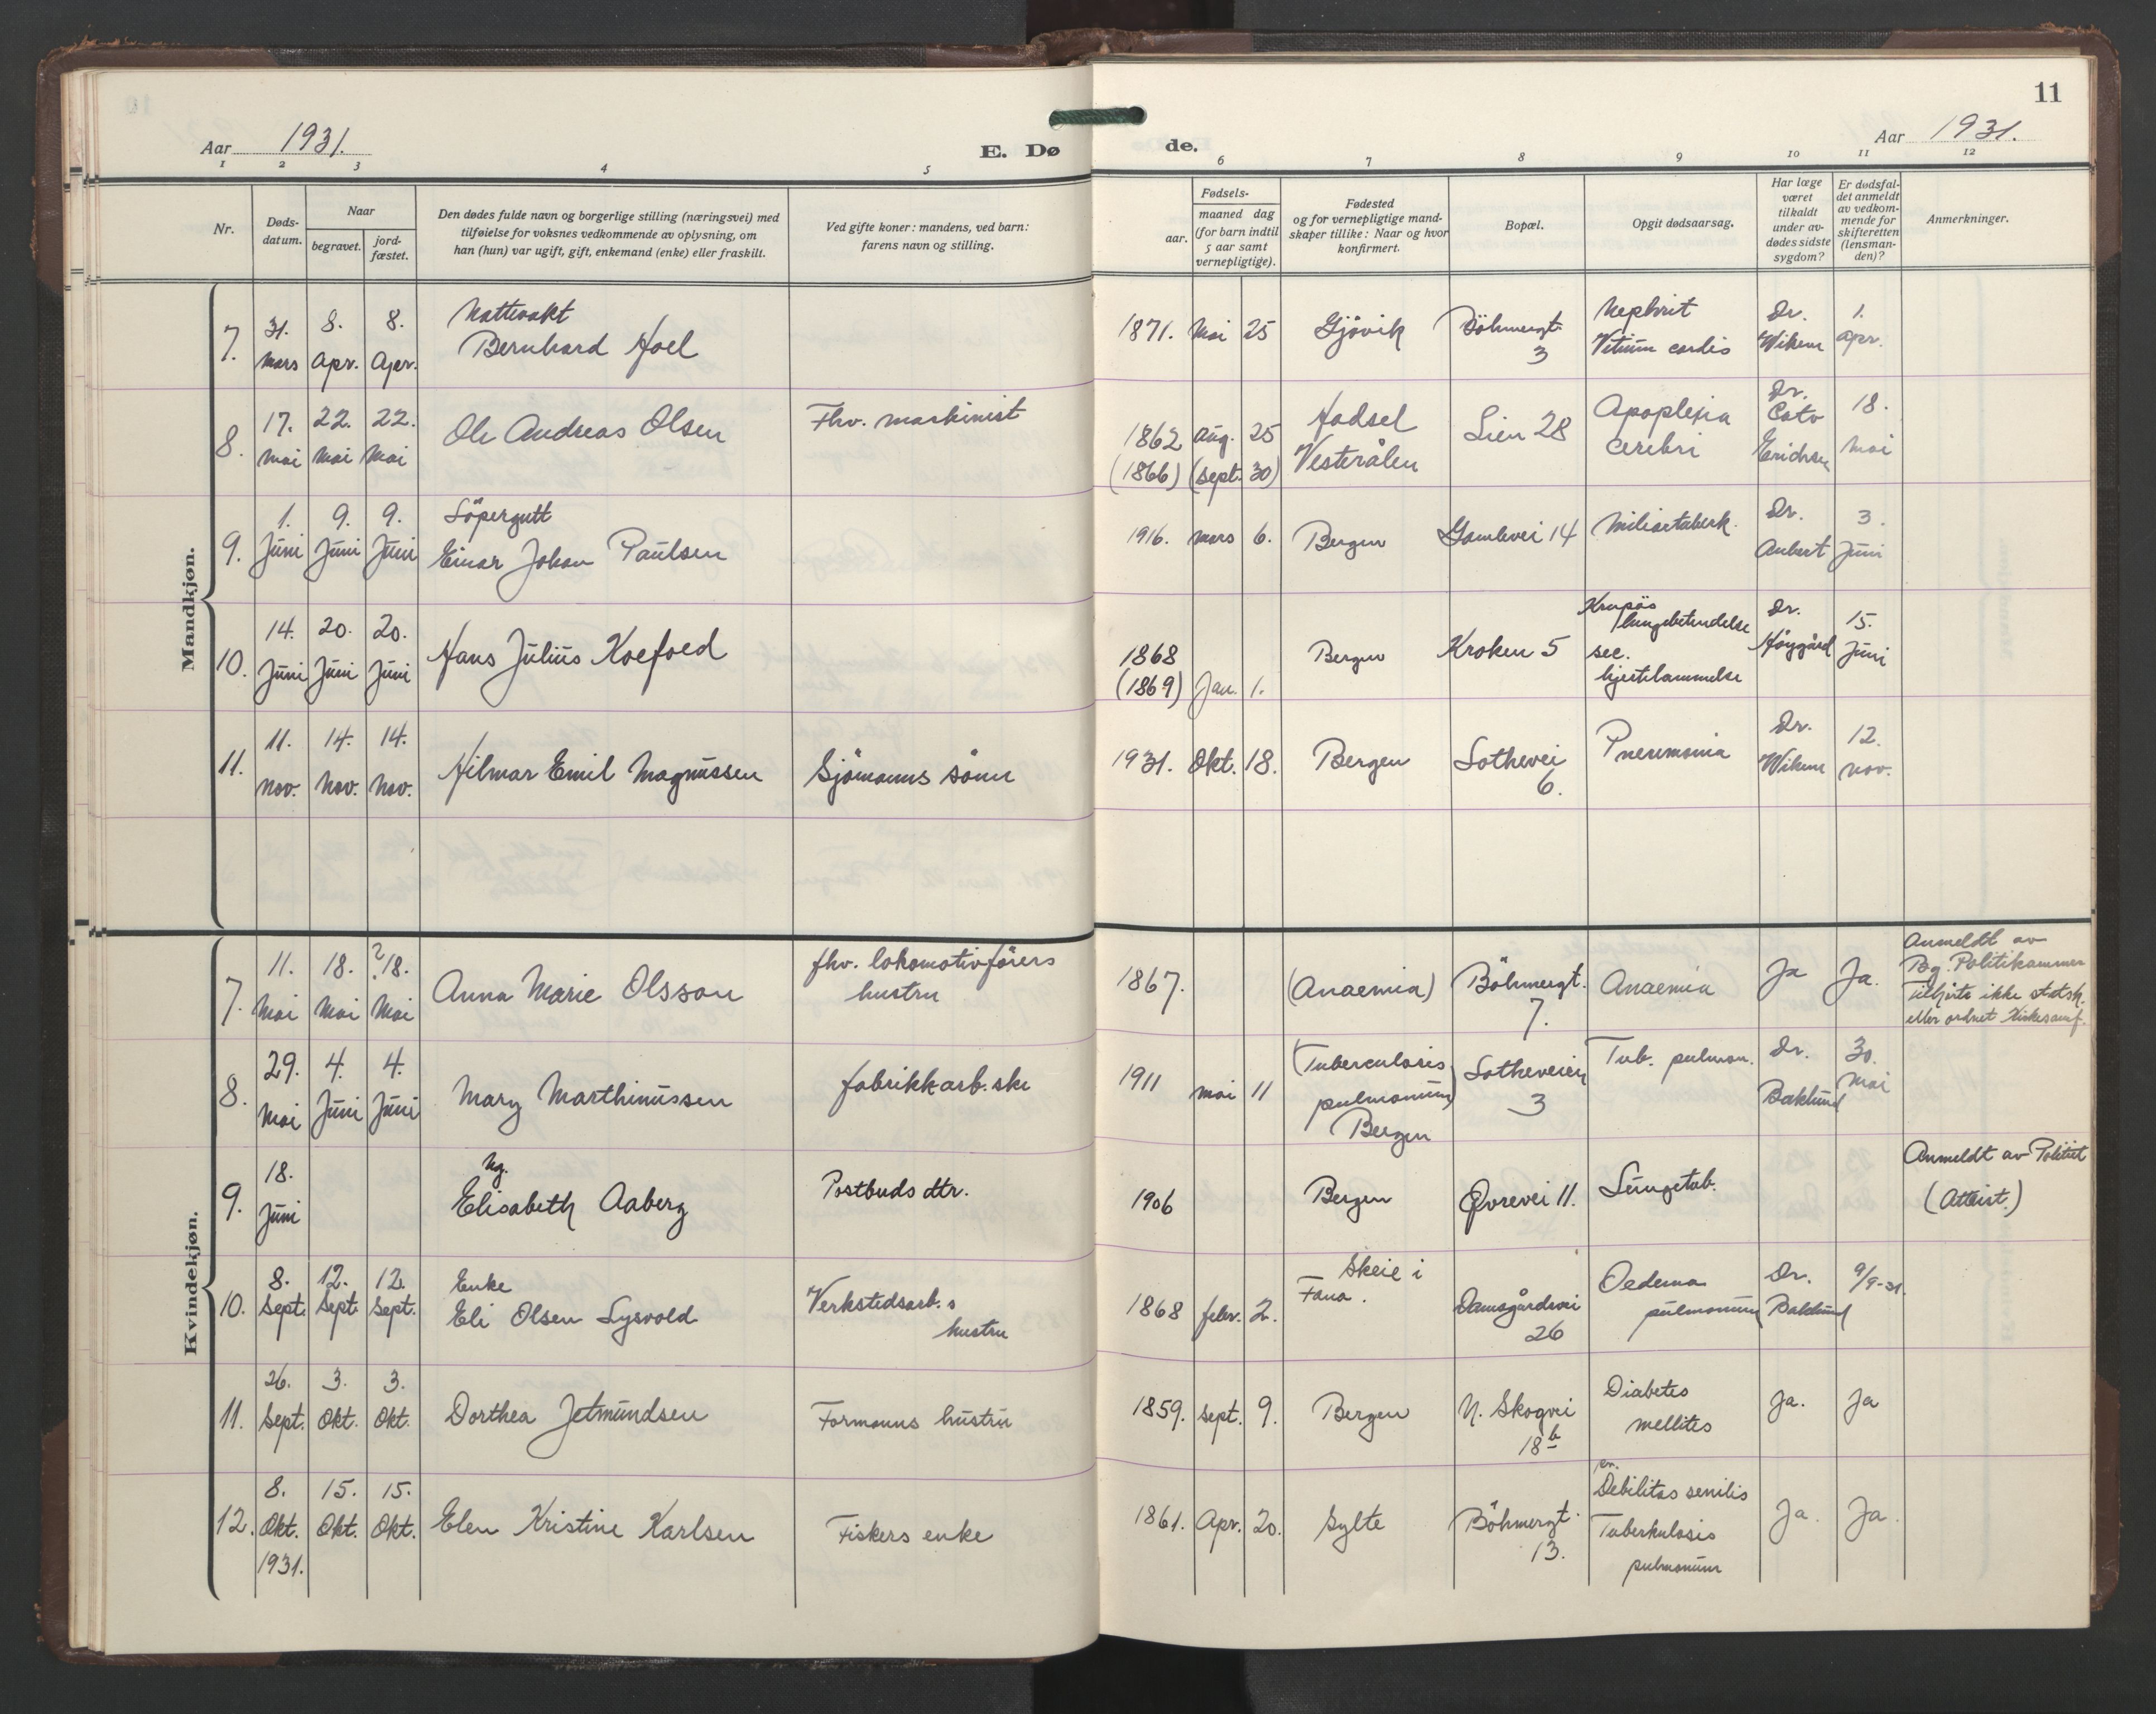 11
Aar 1931.
E. Dø
de.
Aar 1931.
1 2 3 4 5 6 7 8 9 10 11 12
Nr.
Døds-
datum.
Naar
begravet.
jord-
fæstet.
Den dødes fulde navn og borgerlige stilling (næringsvei) med
tilføielse for voksnes vedkommende av oplysning, om
han (hun) var ugift, gift, enkemand (enke) eller fraskilt.
Ved gifte koner: mandens, ved barn:
farens navn og stilling.
Fødsels-
aar.
maaned dag
(for barn indtil
5 aar samt
vernepligtige).
Fødested
og for vernepligtige mand-
skaper tillike: Naar og hvor
konfirmert.
Bopæl.
Opgit dødsaarsag.
Har læge
været
tilkaldt
under av-
dødes sidste
sygdom?
Er dødsfal-
det anmeldt
av vedkom-
mende for
skifteretten
(lensman-
den)?
Anmerkninger.
Mandkjøn.
7.
31.
mars
8.
Apr.
8.
Apr.
Nattevakt
Bernhard Hoel
1871. Mai 25
Gjövik
Böhmergt.
3
Nephrit
Vitium cordis
Dr.
Wikene
1.
Apr.
8.
17.
Mai
22.
Mai
22.
Mai
Ole Andreas Olsen
Fhv. maskinist
1862 Aug. 25
(1866) (Sept. 30)
Hadsel
Vesterålen
Lien 28
Apoplexia
cerebri
Dr.
Cato
Erichsen
18.
Mai
9.
1.
Juni
9.
Juni
9.
Juni
Löpergutt
Einar Johan Paulsen
1916. Mars 6.
Bergen
Gamlevei 14
Miliærtuberk.
Dr.
Aubert
3.
Juni
10.
14.
Juni
20.
Juni
20.
Juni
Hans Julius Koefoed
1868
(1869) Jan. 1.
Bergen
Kroken 5
Krupös
lungebetendelse
sec.
hjertelammelse
Dr.
Höygård
15.
Juni
11.
11.
Nov.
14.
Nov.
14.
Nov.
Hilmar Emil Magnussen
Sjömanns sönn
1931. Okt. 18.
Bergen
Lothevei
6.
Pneumonia
Dr.
Wikene
12.
Nov.
Kvindekjøn.
7.
11.
Mai
18.
Mai
? 18.
Mai
Anna Marie Olsson
fhv. lokomotivförers
hustru
1867.
(Anaemia)
Böhmergt.
7.
Anaemia
Ja
Ja.
Anmeldt av
Bg. Politikammer
Tilhörte ikke statsk.
eller ordnet kirkesamf.
8.
29.
Mai
4.
Juni
4.
Juni
Mary Marthinussen
fabrikkarb.ske
1911 Mai 11
(Tuberculosis
pulmonum)
Bergen
Lotheveien
3
Tub. pulmon.
Dr.
Baklund
30.
Mai
9.
18.
Juni
Ug.
Elisabeth Aaberg
Postbuds dtr.
1906
Bergen
Øvrevei 11.
Lungetub.
Anmeldt av Politiet
(Ateist.)
10.
8.
Sept.
12.
Sept.
12.
Sept.
Enke
Eli Olsen Lysvold
Verkstedsarb.s
hustru
1868 febr. 2.
Skeie i
Fana.
Damsgårdsvei
26
Oedema
pulmonum
Dr.
Baklund
9/9-31.
11.
26.
Sept.
3.
Okt.
3.
Okt.
Dorthea Jetmundsen
Formanns hustru
1859. Sept. 9.
Bergen
N. Skogvei
18 b
Diabetes
mellites
Ja.
Ja
12.
8.
Okt.
1931.
15.
Okt.
15.
Okt.
Elen Kristine Karlsen
Fiskers enke
1861. Apr. 20.
Sylte
Böhmergt.
13.
Debilitas senilis
Tuberkulosis
pulmonum
Ja.
Ja.